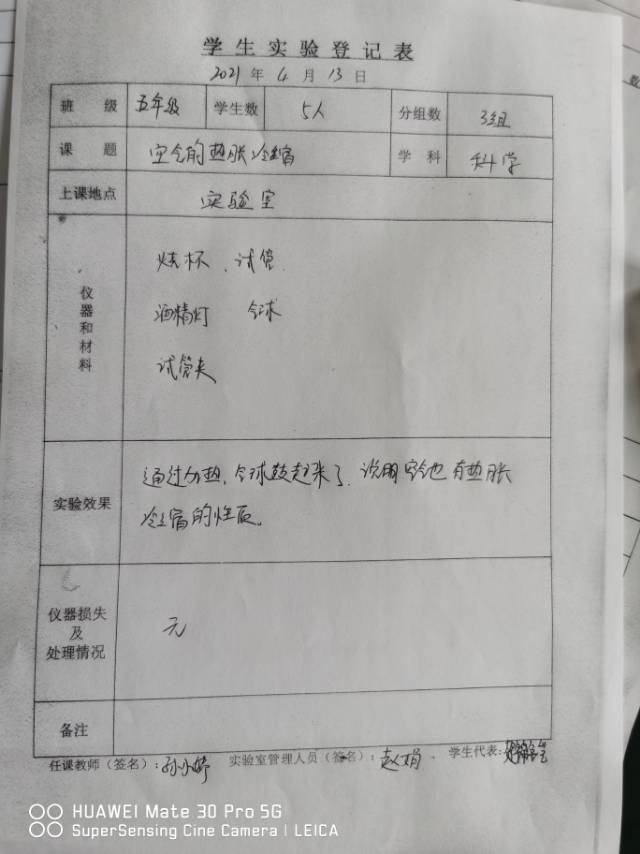 学生实验登记表
2021年4月13日
班级 五年级 学生数 5人 分组数 3组
课题 空气的热胀冷缩 学科 科学
上课地点 实验室
仪器和材料
烧杯、试管
酒精灯 气球
试管夹
实验效果
通过加热,气球鼓起来了,说明空气也有热胀
冷缩的性质。
仪器损失
及
处理情况
无
备注
任课教师(签名):孙小婷 实验室管理人员(签名):赵娟 学生代表:
HUAWEI Mate 30 Pro 5G
SuperSensing Cine Camera | LEICA